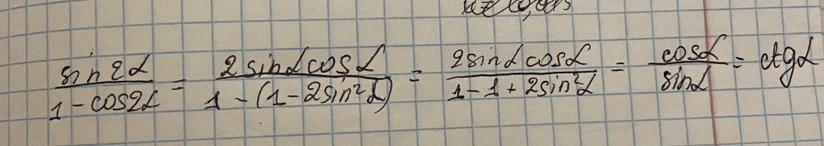 sin2α/(1-cos2α) = 2sinαcosα/(1-(1-2sin²α)) = 2sinαcosα/(1-1+2sin²α) = cosα/sinα = ctgα